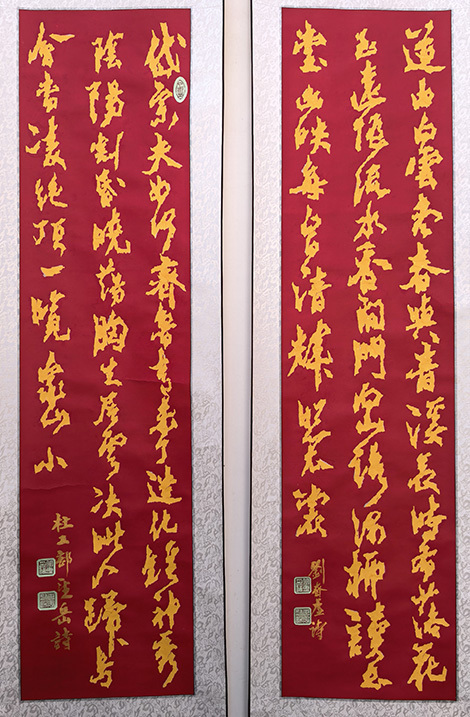 道由白雲盡春與青溪長時有落花
至遠隨流水香閑門向山路深柳讀書
堂幽映每白日清輝照衣裳
劉眘虛詩
岱宗夫如何齊魯青未了造化鍾神秀
陰陽割昏曉蕩胸生層雲決眥入歸鳥
會當凌絕頂一覽衆山小
杜工部望岳詩